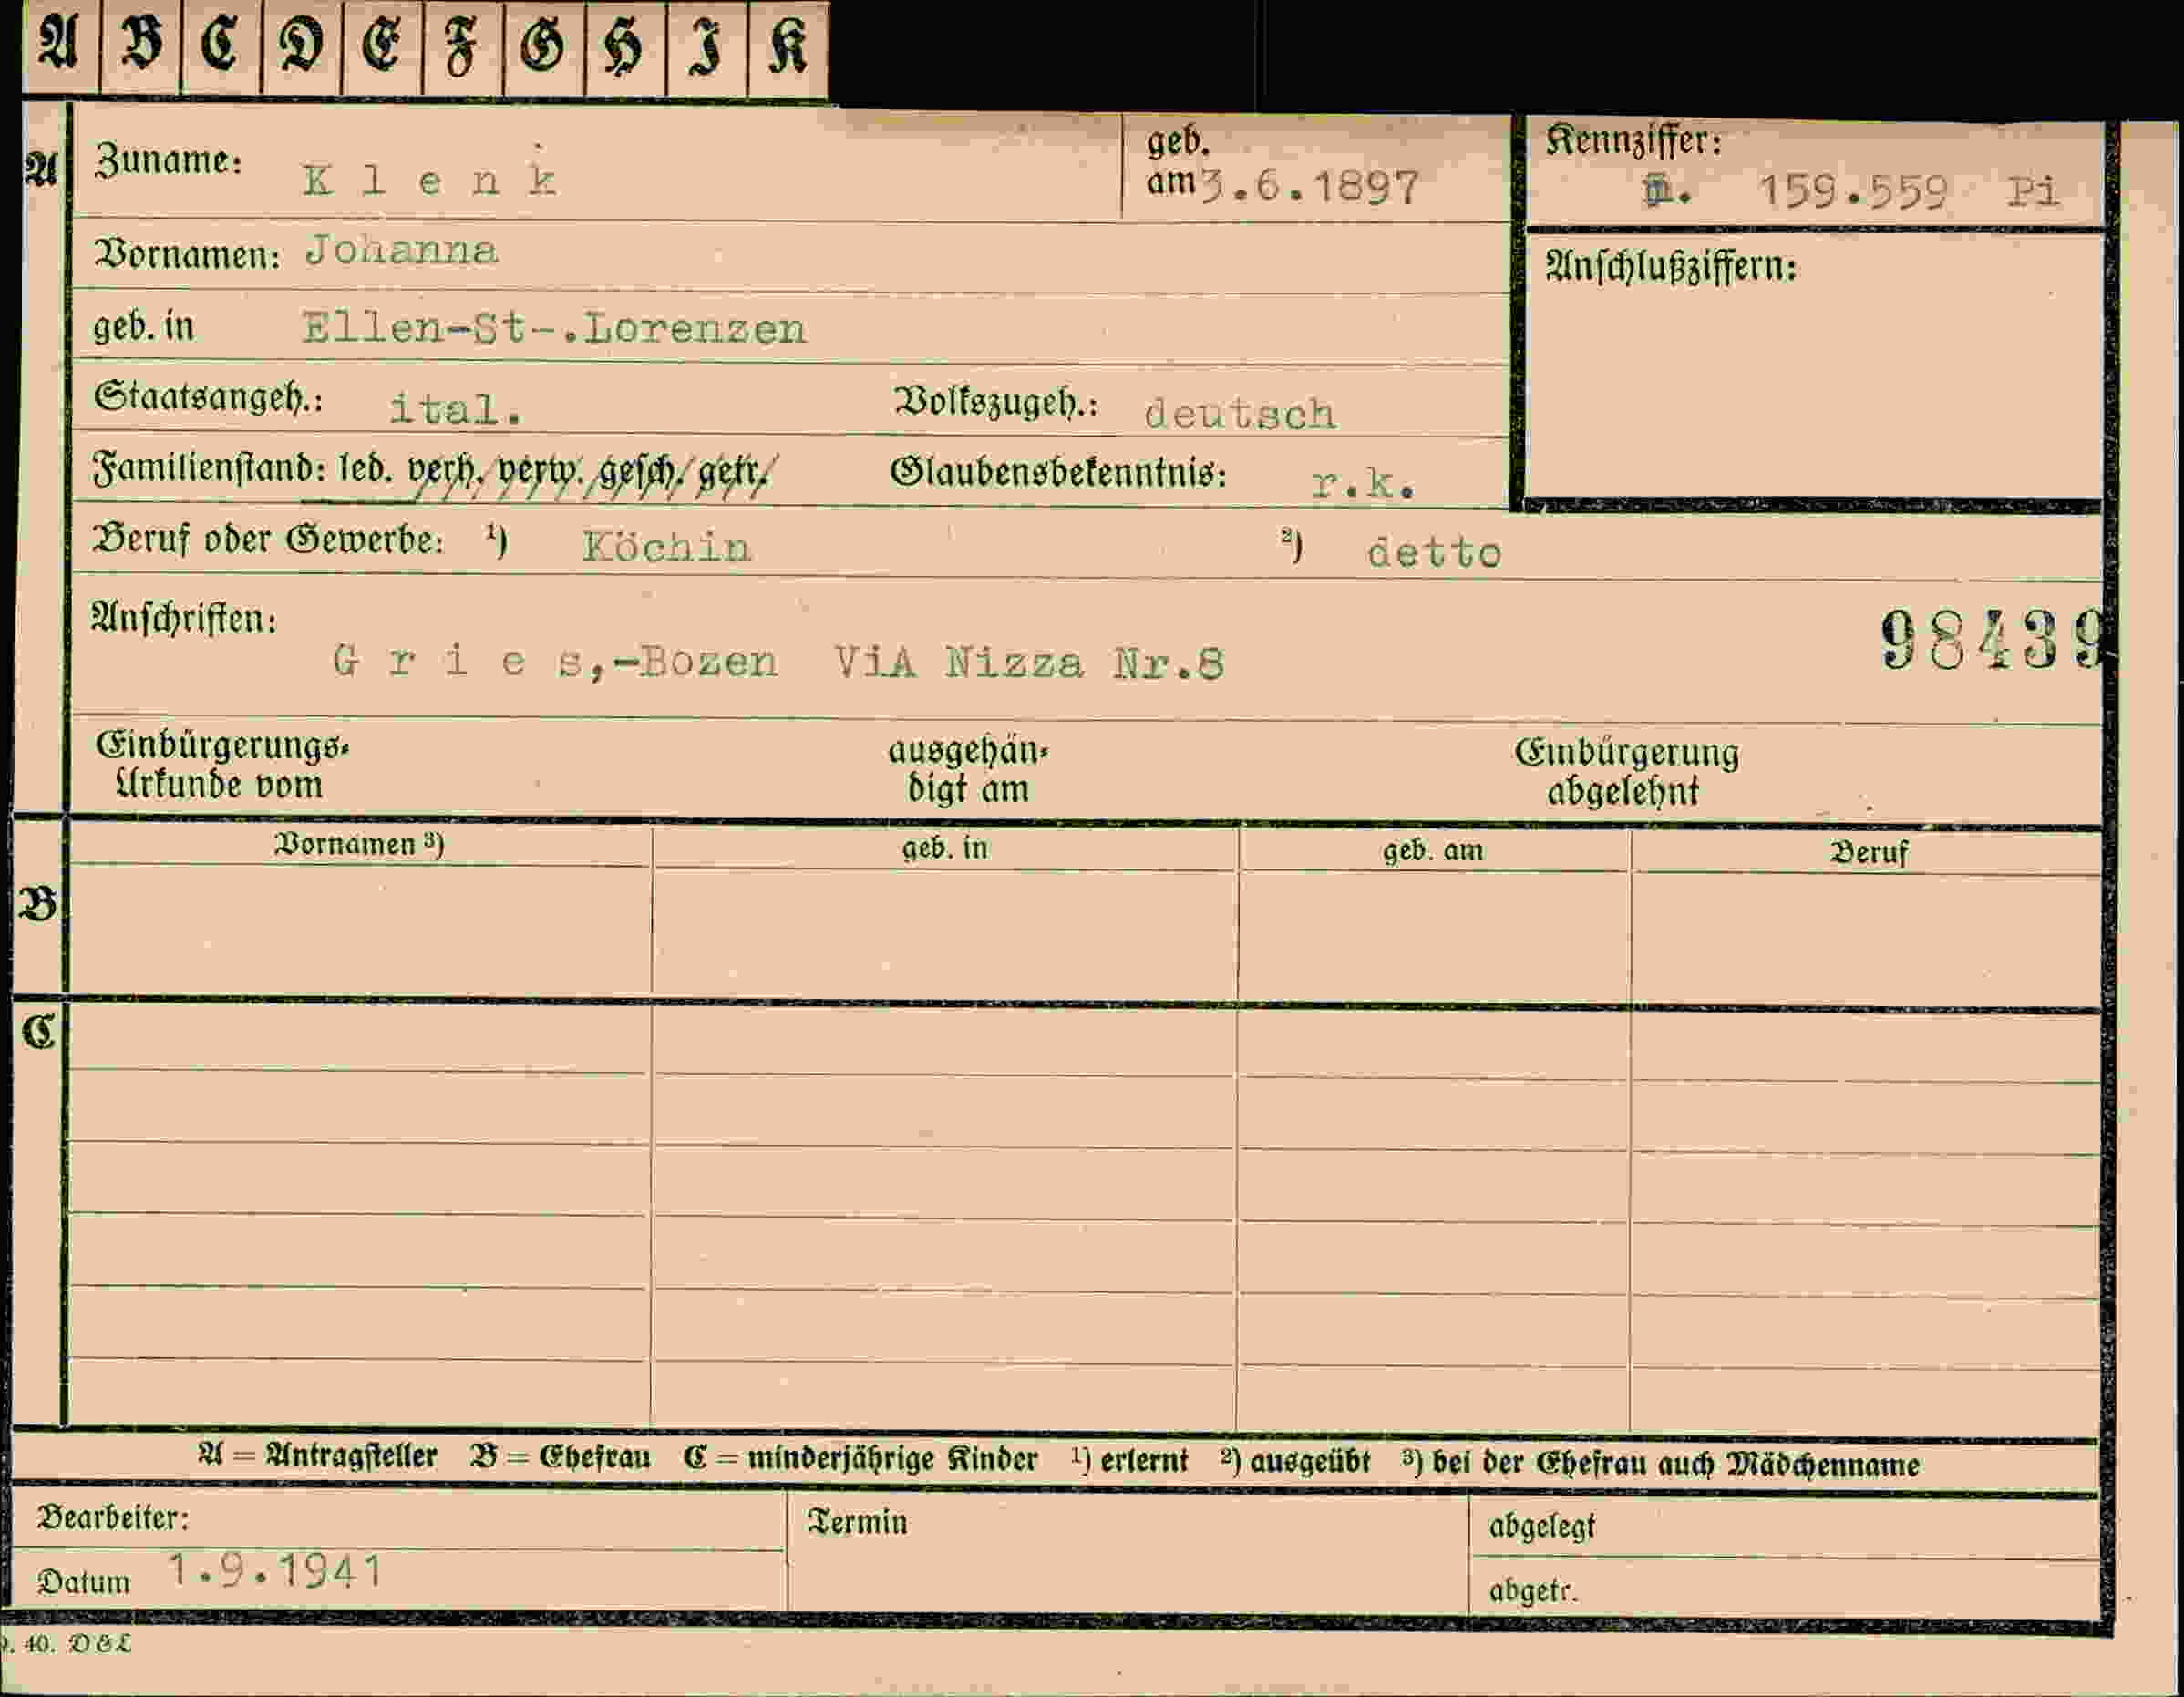 A B C D E F G H I K
A
Zuname: Klenk
geb. am 3.6.1897
Kennziffer: 159.559 Pi
Vornamen: Johanna
Anschlußziffern:
geb. in Ellen-St-.Lorenzen
Staatsangeh.: ital. Volkszugeh.: deutsch
Familienstand: led. verh. verw. gesch. getr. Glaubensbekenntnis: r.k.
Beruf oder Gewerbe: ¹) Köchin ²) detto
Anschriften:
98439
Gries,-Bozen ViA Nizza Nr.8
Einbürgerungs- ausgehän- Einbürgerung
Urkunde vom digt am abgelehnt
Vornamen ³) geb. in geb. am Beruf
B
C
A = Antragsteller B = Ehefrau C = minderjährige Kinder ¹) erlernt ²) ausgeübt ³) bei der Ehefrau auch Mädchenname
Bearbeiter: Termin abgelegt
Datum 1.9.1941 abgetr.
40. D&L